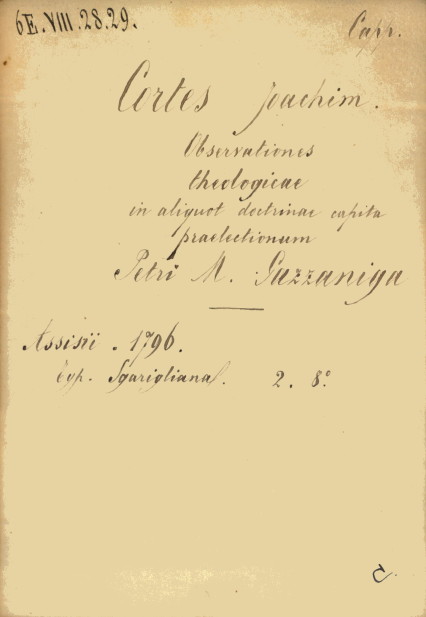 6E.VIII.28.29.
Capr.
Cortes Joachim.
Observationes
theologicae
in aliquot doctrinae capita
praelectionum
Petri M. Gazzaniga
Assisii . 1796.
Typ. Sgarigliana. 2. 8°
C.